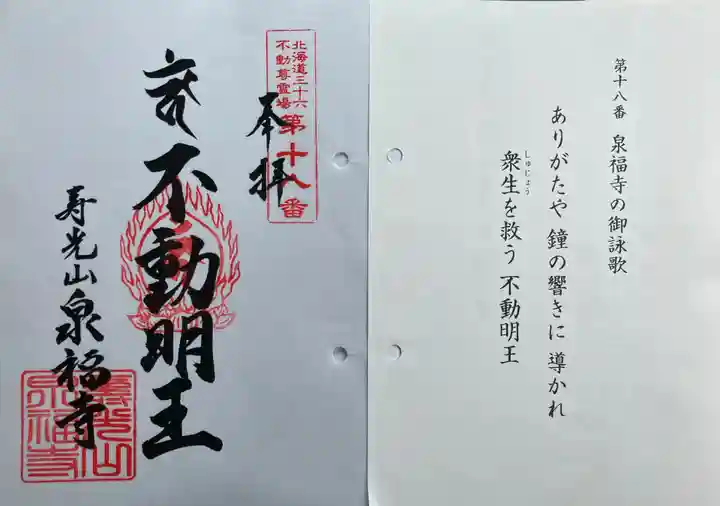 北海道三十六
不動尊霊場
第十八番
奉拝
不動明王
寿光山泉福寺
第十八番 泉福寺の御詠歌
ありがたや 鐘の響きに 導かれ
衆生を救う 不動明王
しゅじょう